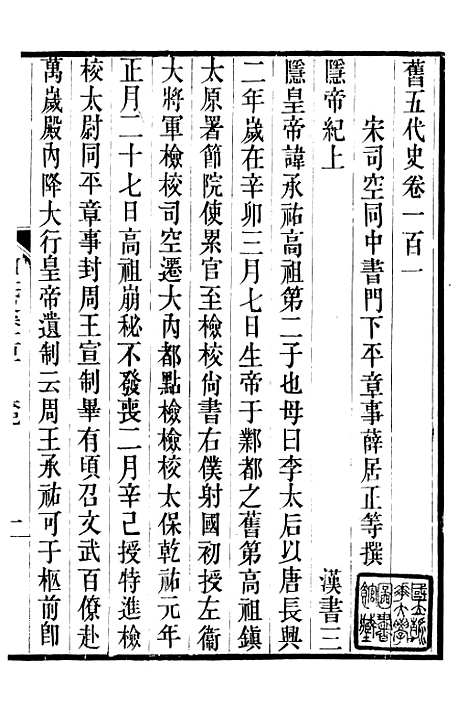 舊五代史卷一百一
宋司空同中書門下平章事薛居正等撰
隱帝紀上 漢書三
隱皇帝諱承祐高祖第二子也母曰李太后以唐長興
二年歲在辛卯三月七日生帝于鄴都之舊第高祖鎮
太原署節院使累官至檢校尙書右僕射國初授左衞
大將軍檢校司空遷大內都點檢檢校太保乾祐元年
正月二十七日高祖崩秘不發喪二月辛巳授特進檢
校太尉同平章事封周王宣制畢有頃召文武百僚赴
萬歲殿內降大行皇帝遺制云周王承祐可于柩前卽
二